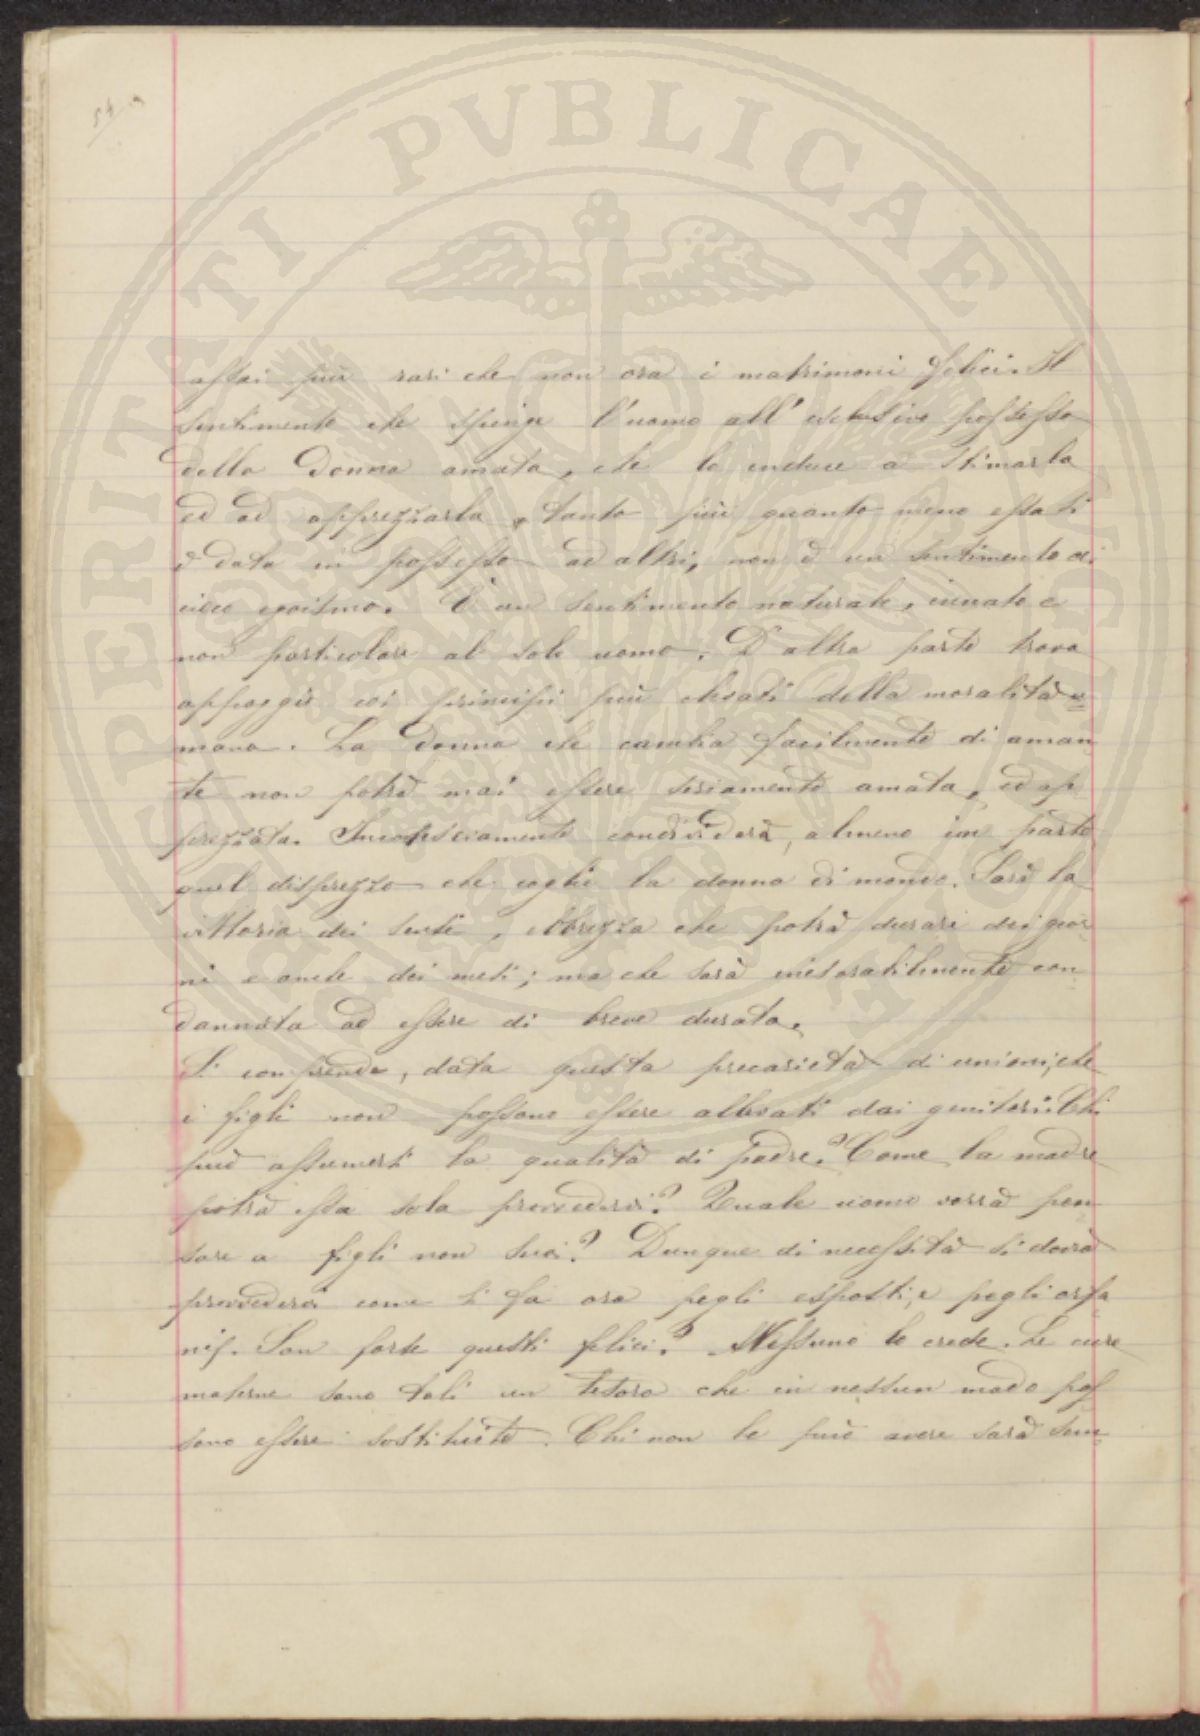 54
assai più rari che non ora i matrimoni felici. Il
sentimento che spinge l'uomo all' esclusivo possesso
della donna amata, che lo induce a stimarla
ed ad apprezzarla, tanto più quanto meno essa si
è data in possesso ad altri, non è un sentimento di
cieco egoismo. È un sentimento naturale, innato e
non particolare al solo uomo. D'altra parte trova
appoggio coi principii più elevati della moralità u=
mana. La donna che cambia facilmente di aman
te non potrà mai essere seriamente amata, ed ap
prezzata. Inconsciamente condividerà, almeno in parte
quel disprezzo che coglie la donna di mondo. Sarà la
vittoria dei sensi, ebbrezza che potrà durare dei gior
ni e anche dei mesi; ma che sarà inesorabilmente con
dannata ad essere di breve durata.
Si comprende, data questa precarietà di unioni, che
i figli non possono essere allevati dai genitori. Chi
può assumersi la qualità di padre? Come la madre
potrà essa sola provvedervi? Quale uomo vorrà pen
sare a figli non suoi? Dunque di necessità si dovrà
provvedervi come si fa ora pegli esposti, e pegli orfa
ni. Son forse questi felici? Nessuno lo crede. Le cure
materne sono tali un tesoro che in nessun modo pos
sono essere sostituite. Chi non le può avere sarà sem
PERITATI PVBLICAE